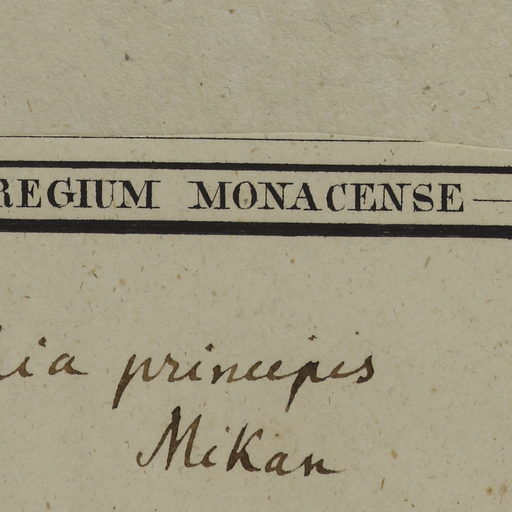 REGIUM MONACENSE
principis
Mikan